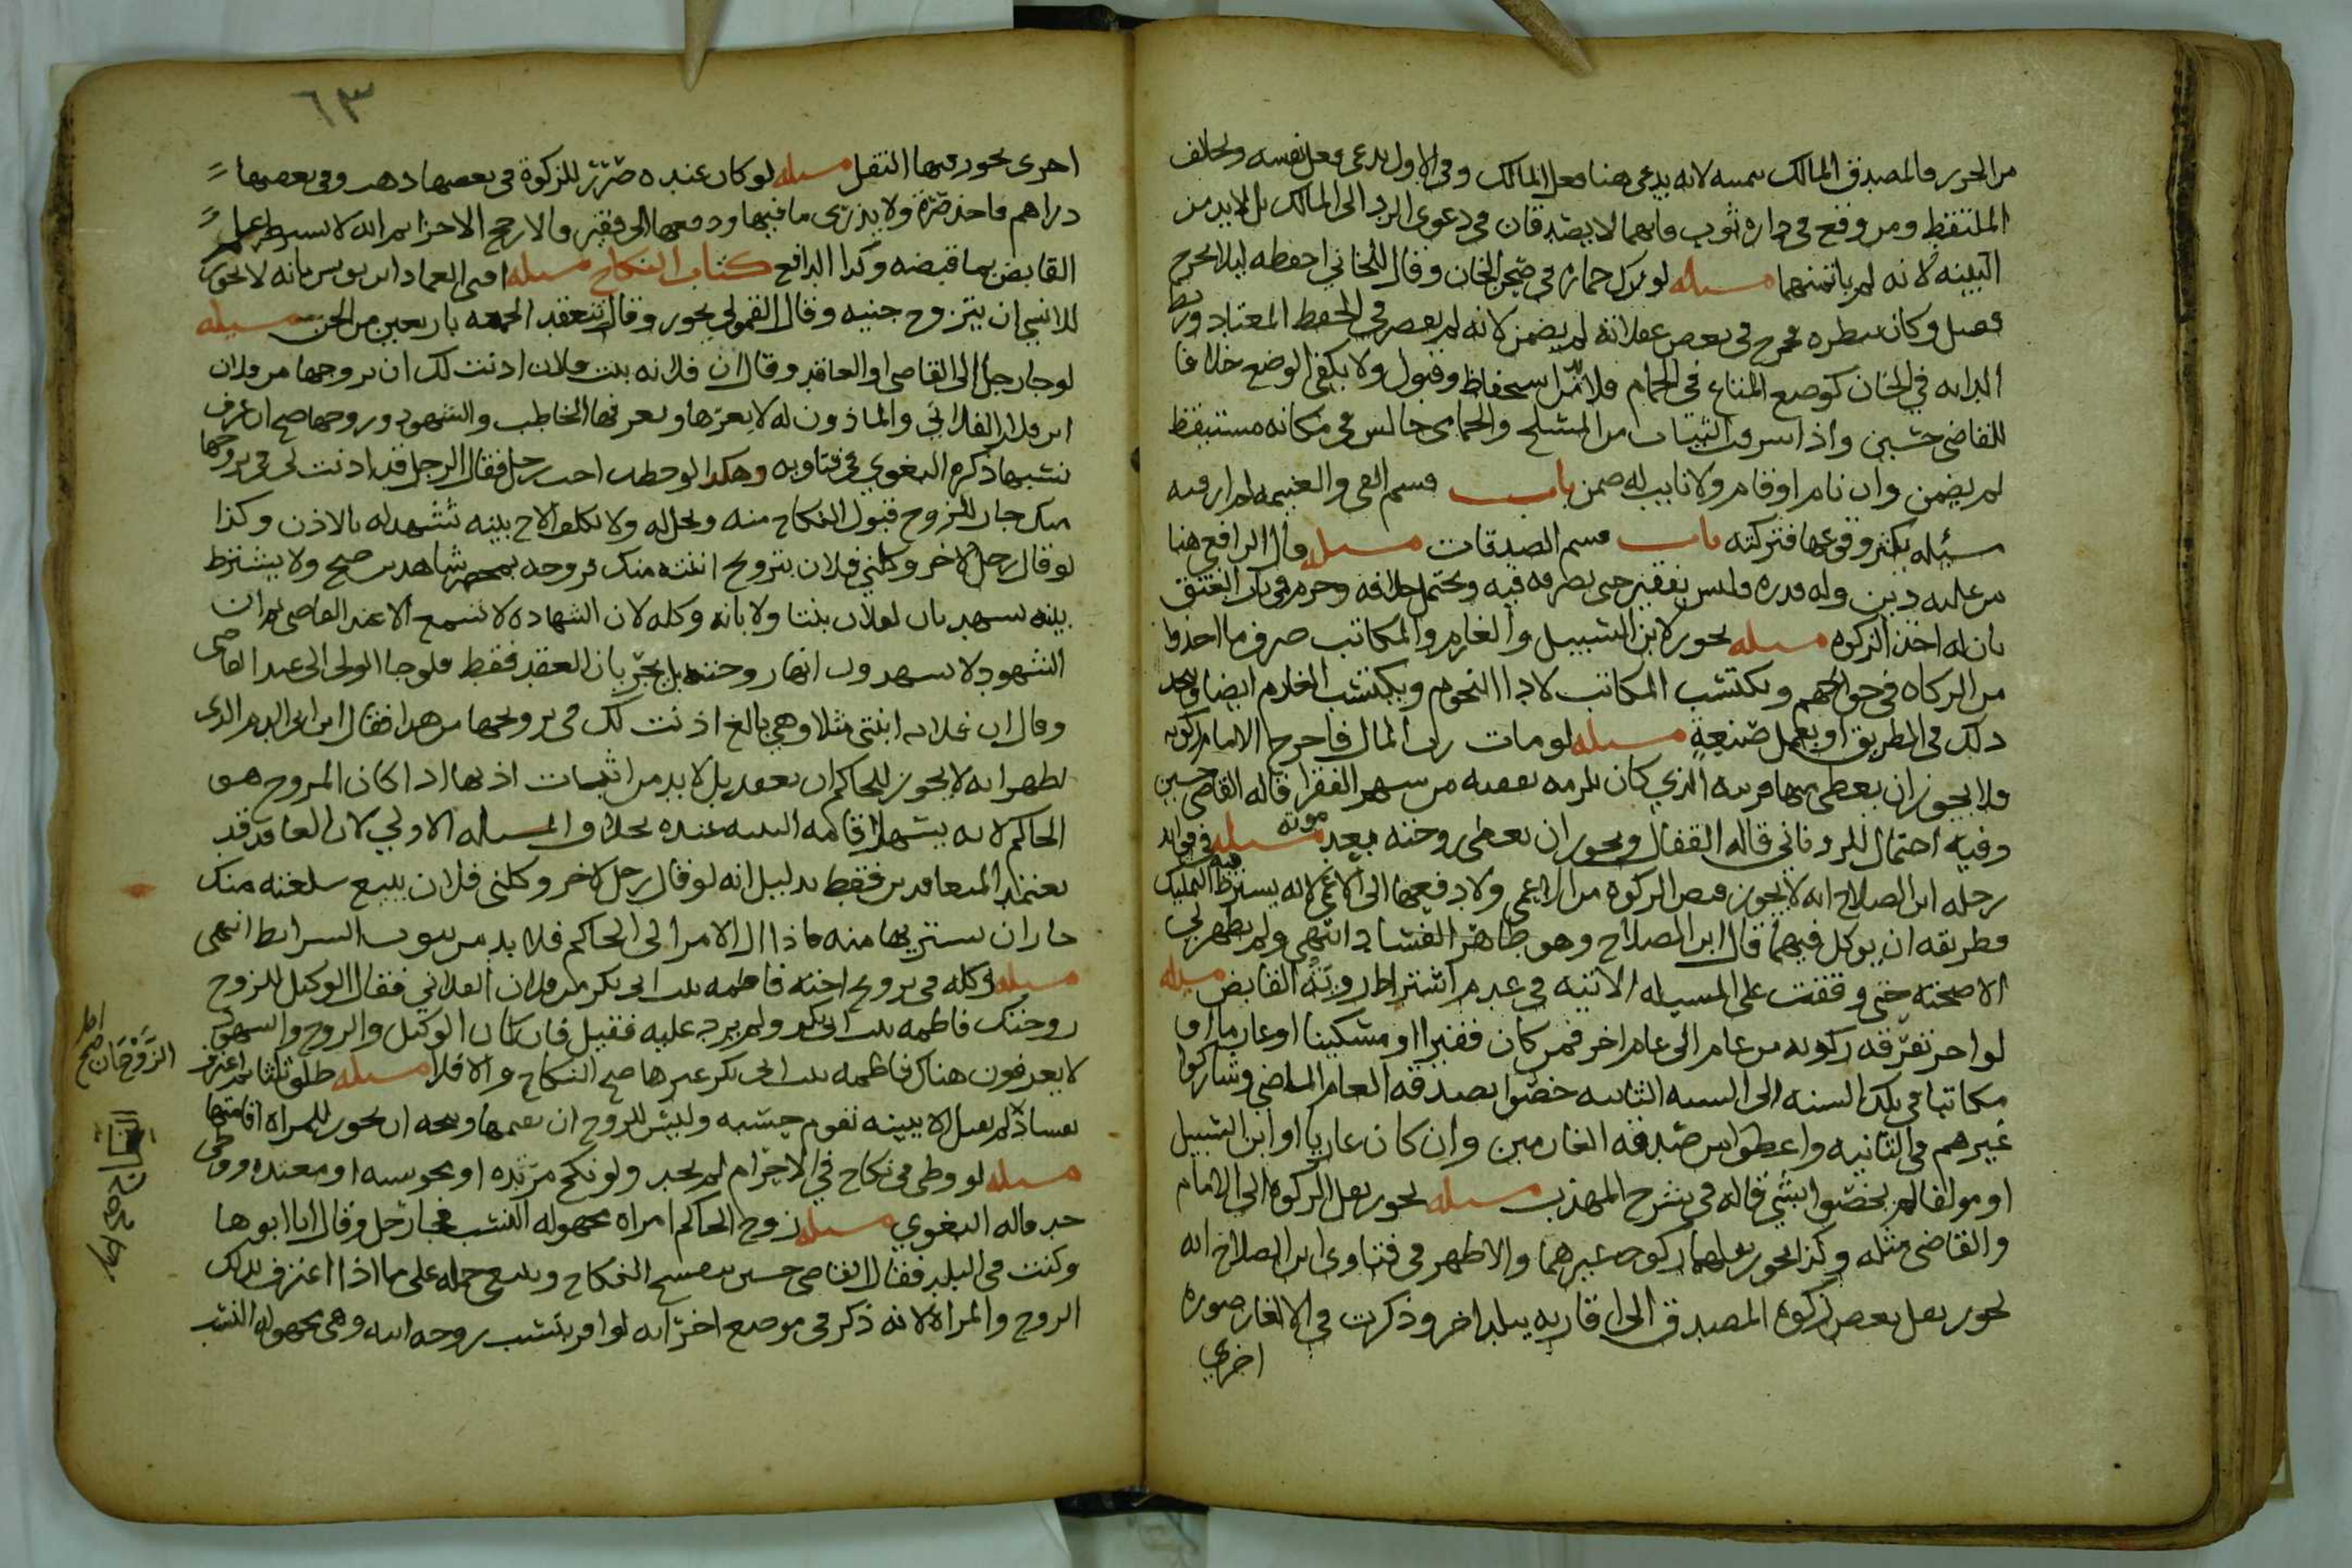 من الحرر فالمصدق المالك بيمينه لانه يدعي هنا فعل المالك وفي الاول يدعي فعل نفسه وبخلاف
الملتقط ومن وقع في داره ثوب فانهما لا يصدقان في دعوى الرد الى المالك بل لا بد من
البينه لانه لم ياتمنهما مسله لو ترك حماره في صحن الخان وقال للخاني احفظه ليلا يخرج
فصل وكان ينظره فخرج في بعض غفلاته لم يضمن لانه لم يقصر في الحفظ المعتاد
الدابه في الخان كوضع المتاع في الحمام فلا بد من استحفاظ وقبول ولا يكفي الوضع خلافا
للقاضي حسين واذا سرقت الثياب من المسلخ والحمامي جالس في مكانه مستيقظ
لم يضمن وان نام او قام ولا نايب له ضمن باب قسم الفي والغنيمه لم ار فيه
مسئله يكثر وقوعها فتركته باب قسم الصدقات مسله قال الرافعي هنا
من عليه دين وله قدره فليس بفقير حتى يصرفه فيه ويحتمل خلافه وجزم في باب العتق
بان له اخذ الزكوه مسله يجوز لابن السبيل والغارم والمكاتب صرف ما اخذوا
من الزكاه في حوائجهم ويكتسب المكاتب لاداء النجوم ويكتسب الغارم ايضا
ذلك في الطريق او يعمل صنيعة مسله لو مات رب المال فاخرج الامام زكوته
فلا يجوز ان يعطي منها قريبه الذي كان يلزمه نفقته من سهم الفقرا قاله القاضي حسين
وفيه احتمال للروياني قاله القفال ويجوز ان يعطي زوجته بعد موته مسله في فوايد
رحله ابن الصلاح انه لا يجوز قبض الزكوه من الاعمى ولا دفعها الى الاعمى لانه يشترط فيه التمليك
وطريقه ان يوكل فيهما قال ابن الصلاح وهو ظاهر الفساد انتهى ولم يظهر لي
الا صحته حتى وقفت على المسيله الاتيه في عدم اشتراط روية القابض مسله
لو اخر تفرقه زكوته من عام الى عام اخر فمن كان فقيرا او مسكينا او غارما او
مكاتبا في تلك السنه الى السنه الثانيه خصوا بصدقه العام الماضي وشاركوا
غيرهم في الثانيه واعطوا من صدقه الغارمين وان كان غازيا او ابن السبيل
او مولفا لم يخصوا بشي قاله في شرح المهذب مسله يجوز نقل الزكوه الى الامام
والقاضي مثله وكذا يجوز نقلهما زكوه غيرهما والاظهر في فتاوى ابن الصلاح انه
يجوز نقل بعض زكوه المصدق الى اقاربه ببلد اخر وذكرت في الالغاز صوره
اخري
٦٣
اخرى يجوز فيها النقل مسله لو كان عنده صرر للزكوة في بعضها ذهب وفي بعضها
دراهم فاخذ صرة ولا يدري ما فيها ودفعها الى فقير فالارجح الاجزا ثم انه لا يشترط علم
القابض بما قبضه وكذا الدافع كتاب النكاح مسله افتى العماد ابن يونس بانه لا يجوز
للانسي ان يتزوج جنيه وقال القمولي يجوز وقال تنعقد الجمعه باربعين من الجن مسيله
لو جا رجل الى القاضي او العاقد وقال ان فلانه بنت فلان اذنت لك ان تزوجها من فلان
ابن فلان الفلاني والماذون له لا يعرفها ويعرفها الخاطب والشهود وزوجها صح ان عرف
نسبها ذكره البغوي في فتاويه وهكذا لو خطب اخت رجل فقال الرجل قد اذنت لي في تزويجها
منك جاز للزوج قبول النكاح منه ويحل له ولا يكلف الاخ بينه تشهد له بالاذن وكذا
لو قال رجل لاخر وكلني فلان بتزويج ابنته منك فزوجه بمحضر شاهدين صح ولا يشترط
بينه تشهد بان لفلان بنتا ولا بانه وكله لان الشهاده لا تسمع الا عند القاضي ثم ان
الشهود لا يشهدون انها زوجته بل بجريان العقد فقط فلو جا الولي الى عند القاضي
وقال ان فلانه ابنتي مثلا وهي بالغ اذنت لك في تزويجها من هذا فقال ابن ابي الدم الذي
يظهر انه لا يجوز للحاكم ان يعقد بل لا بد من اثبات اذنها اذا كان المزوج هو
الحاكم لانه يسهل اقامه البينه عنده بخلاف المسيله الاولي لان العاقد قد
يعتمد المتعاقدين فقط بدليل انه لو قال رجل لاخر وكلني فلان ببيع سلعته منك
جاز ان يشتريها منه فاذا ال الامر الى الحاكم فلا بد من ثبوت الشرايط انتهى
مسيله وكله في تزويج اخته فاطمه بنت ابي بكر بن فلان الفلاني فقال الوكيل للزوج
زوجتك فاطمه بنت ابي بكر ولم يزد عليه فقبل فان كان الوكيل والزوج والشهود
لا يعرفون هناك فاطمه بنت ابي بكر غيرها صح النكاح والا فلا مسيله طلق ثلثا ثم اعترف
بفساد لم يقبل الا ببينه تقوم حسبه وليس للزوج ان يقيمها ويتجه ان يجوز للمراه اقامتها
مسيله لو وطي في نكاح في الاحرام لم يحد ولو نكح مرتده او مجوسيه او معتده ووطي
حد قاله البغوي مسيله زوج الحاكم امراه مجهوله النسب فجا رجل وقال انا ابوها
وكنت في البلد فقال القاضي حسين ينفسخ النكاح وينبغي حمله على ما اذا اعترف بذلك
الزوج والمراه لانه ذكر في موضع اخر انه لو اقر بنسب زوجه ابنه وهي مجهوله النسب
الزوجان صح